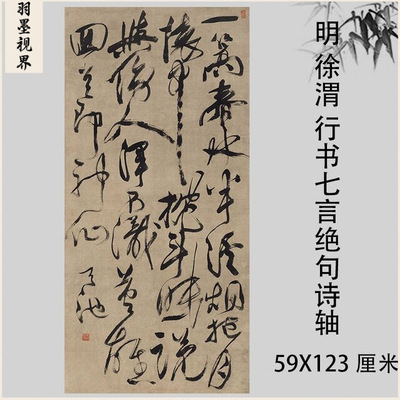 羽墨视界
明 徐渭 行书七言绝句诗轴
59X123 厘米
一篙春水半溪烟抱月
懷中枕斗眠說
與傍人渾不識英雄
回首即神仙
天池